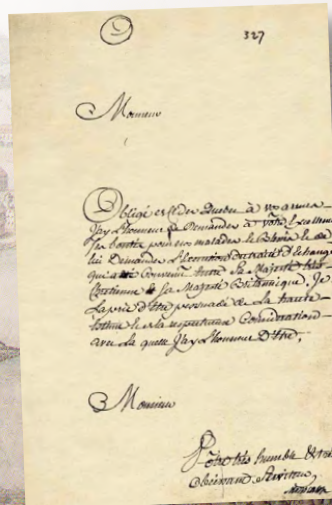 327
Monsieur
Obligé de Ceder Quebec à vos armes
J'ay L'honneur de Demander à Votre Excellence
ses bontés pour nos malades
lui Demander L'execution du traité d'Echange
qui a été Convenu Entre Sa Majesté très
Chretienne et Sa Majesté Britannique, Je
La prie d'être persuadé de La haute
Estime et La respectueuse Consideration
avec La quelle J'ay L'honneur D'être,
Monsieur
Votre très humble et très
Obeissant Serviteur